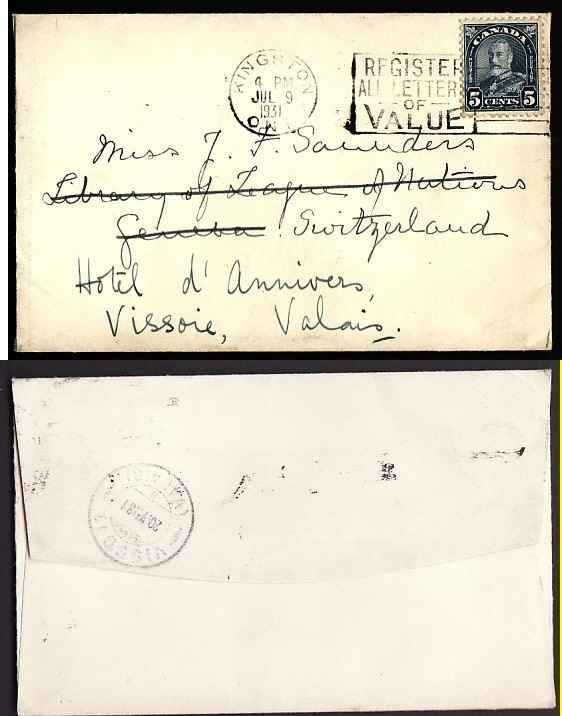 CANADA
5 CENTS 5
KINGSTON
4 PM
JUL 9
1931
ONT
REGISTER
ALL LETTERS
OF
VALUE
Miss J. F. Saunders
Library of League of Nations
Geneva Switzerland
Hotel d'Annivers,
Vissoie, Valais.
VISSOIE